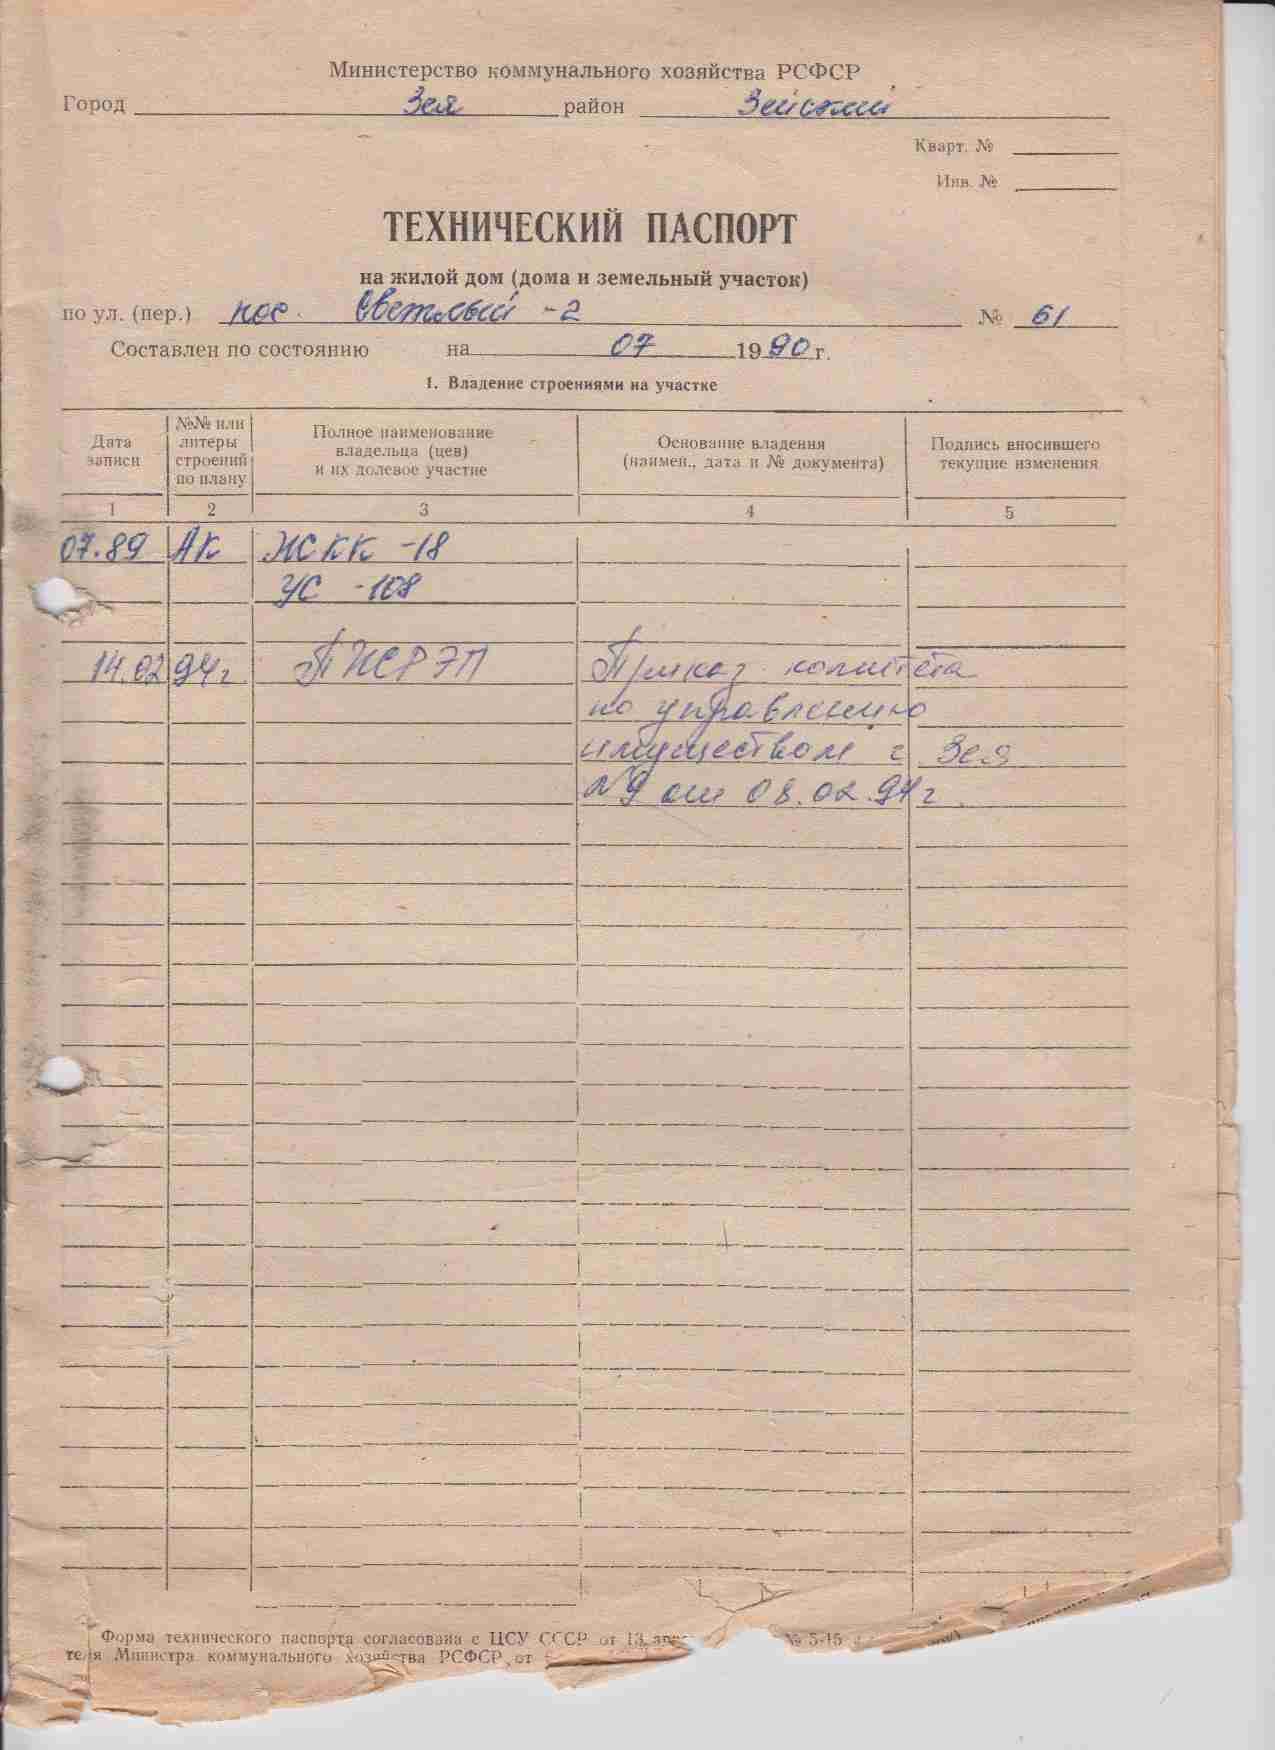 Министерство коммунального хозяйства РСФСР
Город Зея район Зейский
Кварт. №
Инв. №
ТЕХНИЧЕСКИЙ ПАСПОРТ
на жилой дом (дома и земельный участок)
по ул. (пер.) пос. Светлый -2 № 61
Составлен по состоянию на 07 1990 г.
1. Владение строениями на участке
Дата записи
№№ или литеры строений по плану
Полное наименование владельца (цев) и их долевое участие
Основание владения (наимен., дата и № документа)
Подпись вносившего текущие изменения
1 2 3 4 5
07.89 АК ЖСКК -18
УС -108
14.02 94г ПЖРЭП Приказ комитета
по управлению
имуществом г Зея
N9 от 08.02.94г.
Форма технического паспорта согласована с ЦСУ СССР от 13 № 5-15
теля Министра коммунального хозяйства РСФСР от